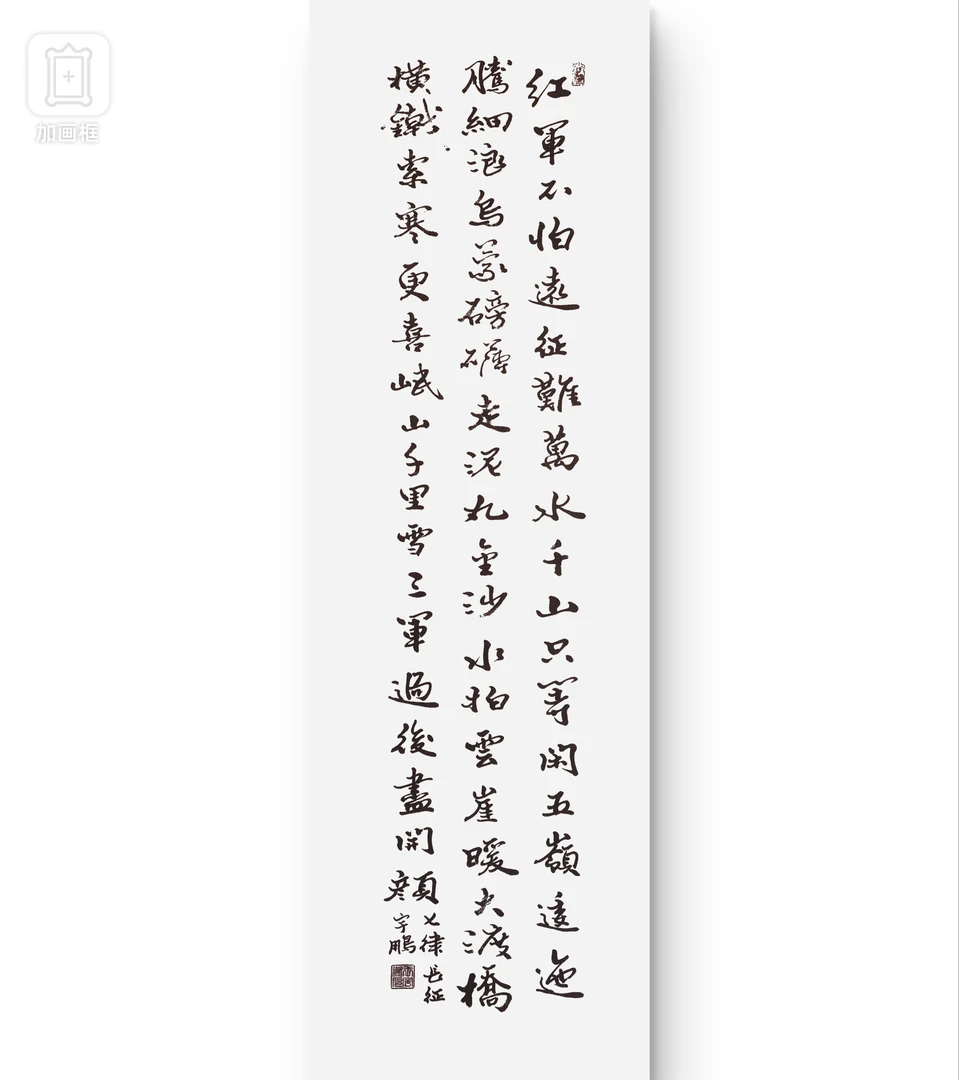 加画框
紅軍不怕遠征難萬水千山只等閑五嶺逶迤
騰細浪烏蒙磅礴走泥丸金沙水拍雲崖暖大渡橋
橫鐵索寒更喜岷山千里雪三軍過後盡開顏
七律長征
宇鵬